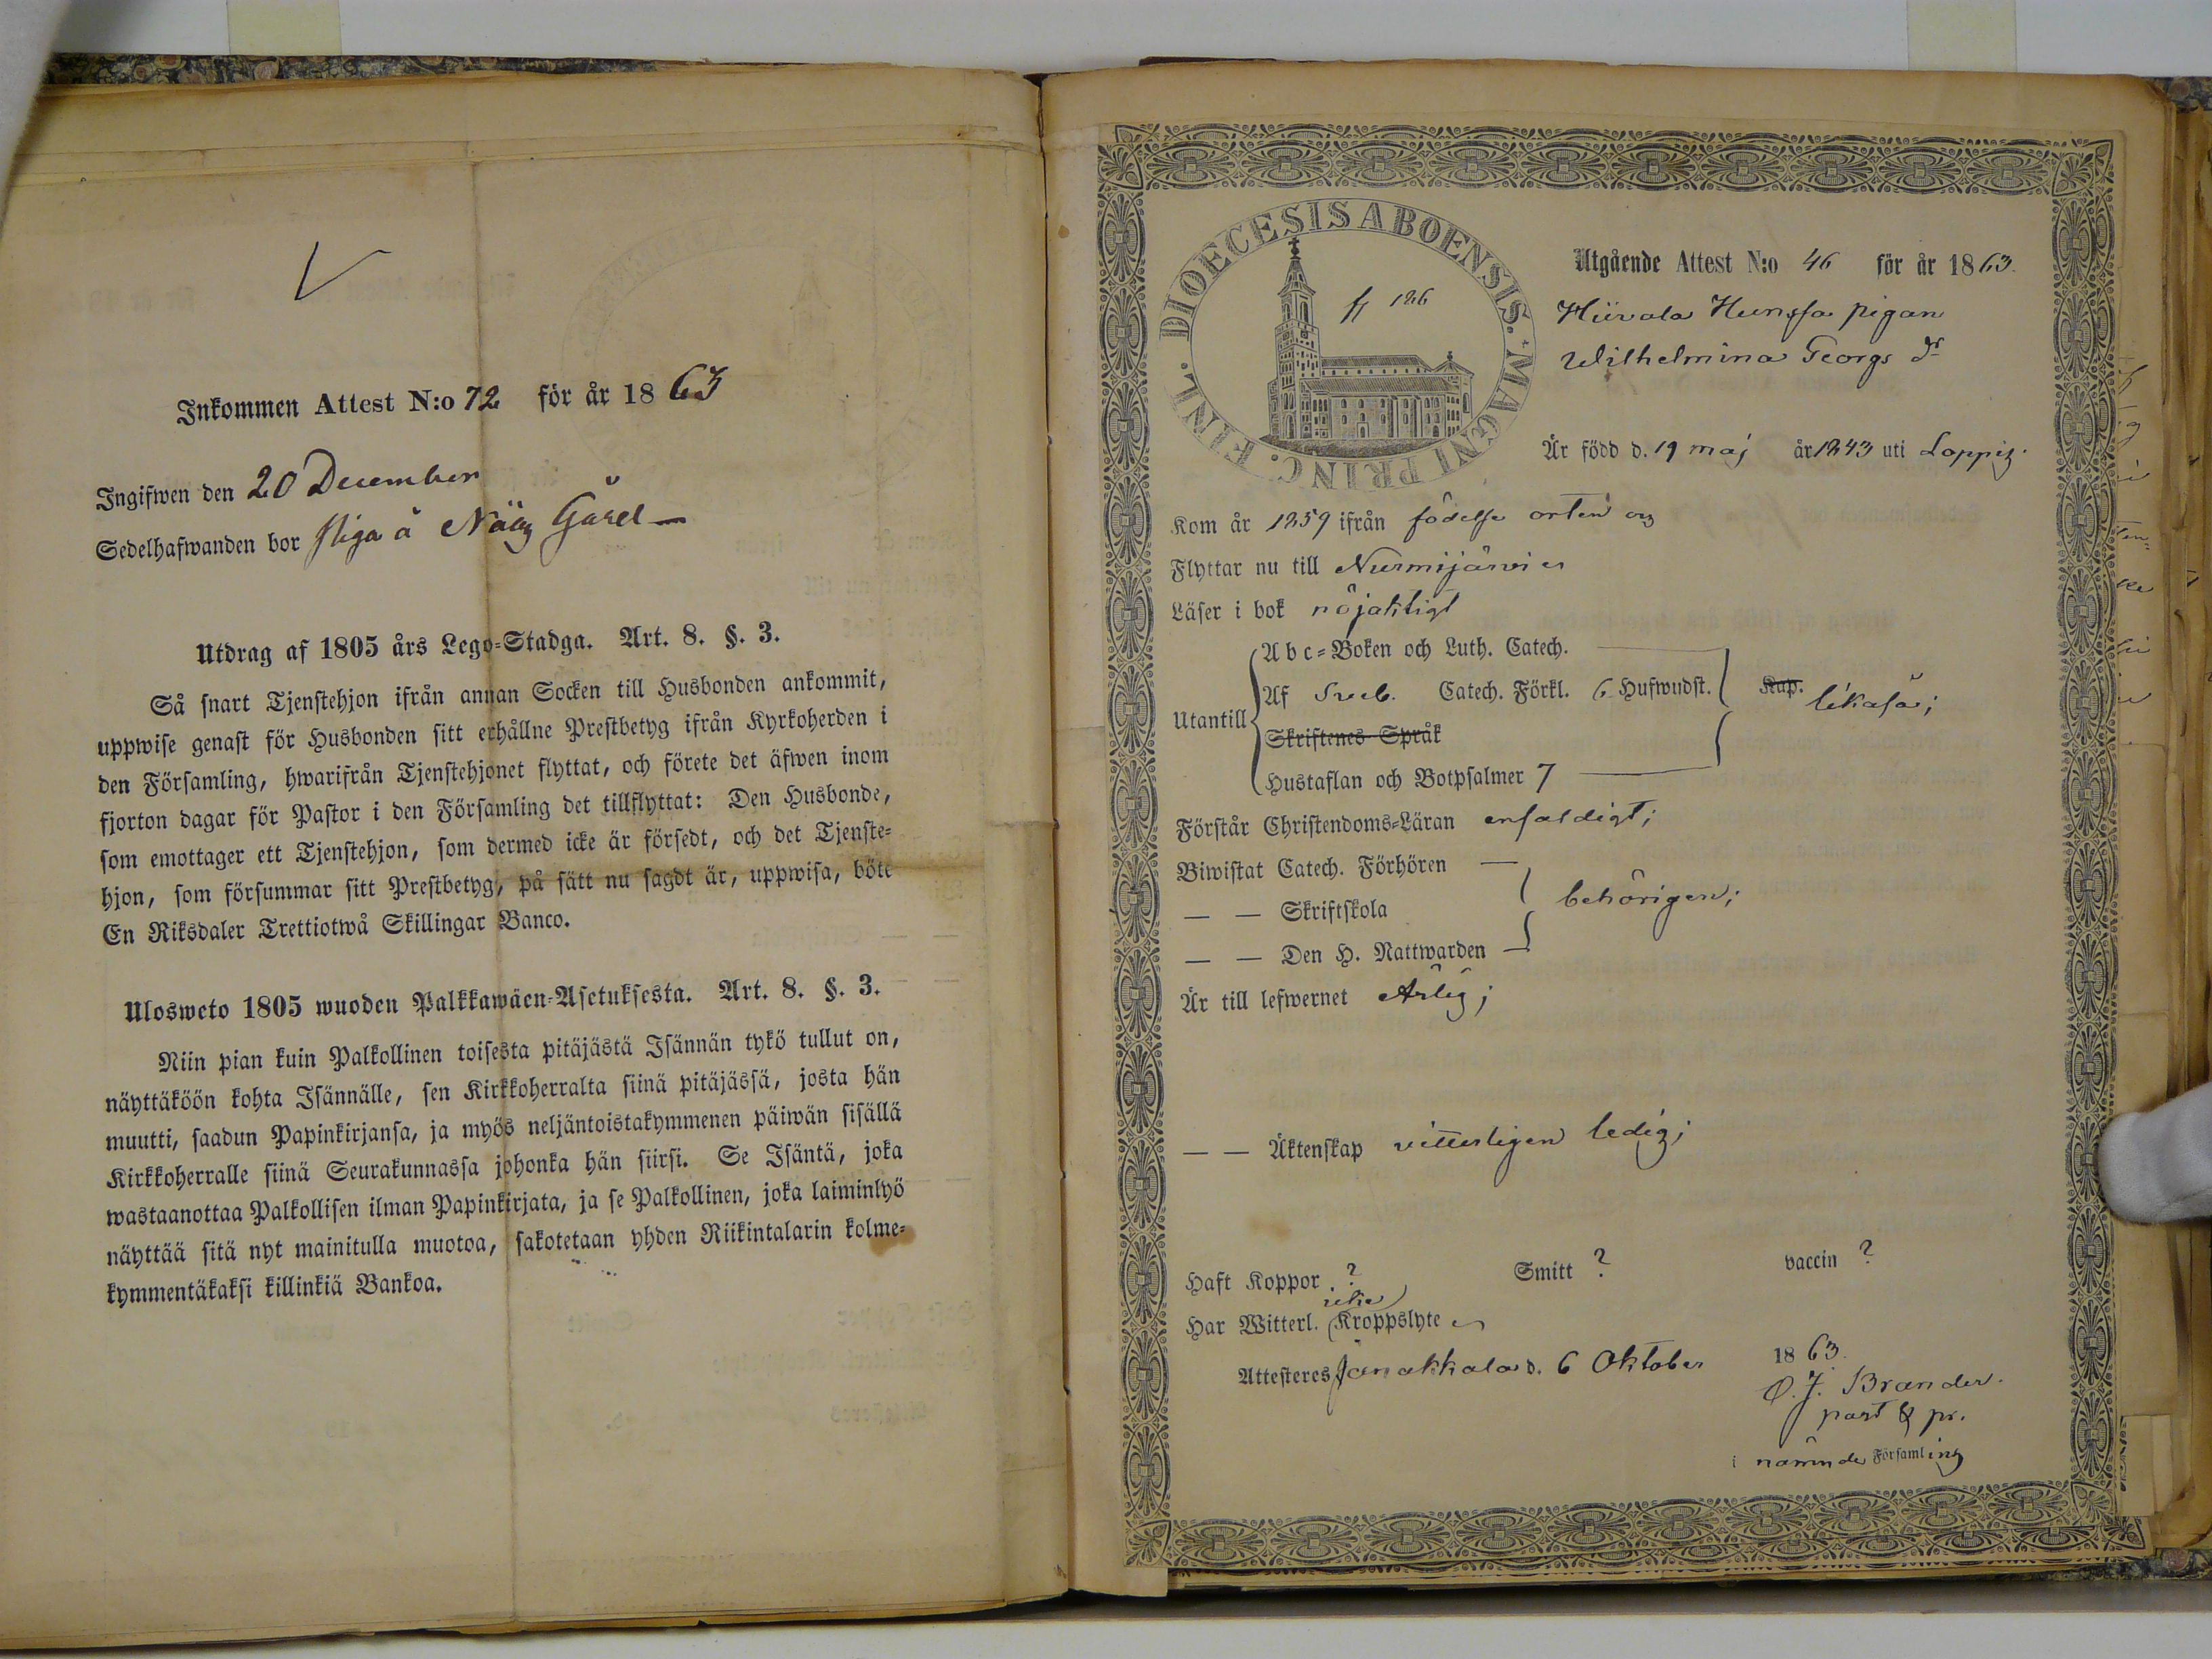 V
Inkommen Attest N:o 72 för år 1863
Ingifwen den 20 December
Sedelhafwanden bor piga å Nääs Gård
Utdrag af 1805 års Lego-Stadga. Art. 8. §. 3.
Så snart Tjenstehjon ifrån annan Socken till Husbonden ankommit,
uppwise genast för Husbonden sitt erhållne Prestbetyg ifrån Kyrkoherden i
den Församling, hwarifrån Tjenstehjonet flyttat, och förete det äfwen inom
fjorton dagar för Pastor i den Församling det tillflyttat: Den Husbonde,
som emottager ett Tjenstehjon, som dermed icke är försedt, och det Tjenste-
hjon, som försummar sitt Prestbetyg, på sätt nu sagdt är, uppwisa, böte
En Riksdaler Trettiotwå Skillingar Banco.
Ulosweto 1805 wuoden Palkkawäen-Asetuksesta. Art. 8. §. 3.
Niin pian kuin Palkollinen toisesta pitäjästä Isännän tykö tullut on,
näyttäköön kohta Isännälle, sen Kirkkoherralta siinä pitäjässä, josta hän
muutti, saadun Papinkirjansa, ja myös neljäntoistakymmenen päiwän sisällä
Kirkkoherralle siinä Seurakunnassa johonka hän siirsi. Se Isäntä, joka
wastaanottaa Palkollisen ilman Papinkirjata, ja se Palkollinen, joka laiminlyö
näyttää sitä nyt mainitulla muotoa, sakotetaan yhden Riikintalarin kolme-
kymmentäkaksi killinkiä Bankoa.
DIOECESIS ABOENSIS. MAGNI PRINC. FINL.
126
Utgående Attest N:o 46 för år 1863.
Hiivala Hungfa pigan
Wilhelmina Georgs dr
Är född d. 19 maj år 1843 uti Loppis.
Kom år 1859 ifrån födelse orten og
Flyttar nu till Nurmijärvi
Läser i bok nöjaktigt
Utantill
Abc-Boken och Luth. Catech.
Af Sveb. Catech. Förkl. 6 Hufwudst. Kap. likaså;
Skriftenes Språk
Hustaflan och Botpsalmer 7
Förstår Christendoms-Läran enfaldigt;
Biwistat Catech. Förhören
— — Skriftskola behörigen;
— — Den H. Nattwarden
Är till lefwernet Ärlig;
— — Äktenskap vitterligen ledig;
Haft Koppor ? Smitt ? vaccin ?
icke
Har Witterl. Kroppslyte
Attesteres Janakkala d. 6 Oktober 1863.
O. J. Brander.
past & pr.
i nämnde Församling